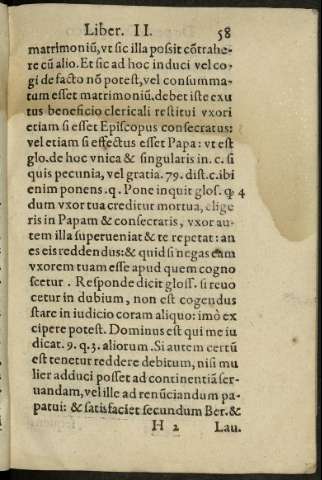 Liber. II. 58
matrimoniũ, vt sic illa possit cõtrahe-
re cũ alio. Et sic ad hoc induci vel co-
gi de facto nõ potest, vel consumma-
tum esset matrimoniũ. debet iste exu
tus beneficio clericali restitui vxori
etiam si esset Episcopus consecratus:
vel etiam si effectus esset Papa: vt est
glo. de hoc vnica & singularis in. c. si
quis pecunia, vel gratia. 79. dist. c. ibi
enim ponens. q. Pone inquit glos. q 4
dum vxor tua creditur mortua, elige
ris in Papam & consecratis, vxor au-
tem illa superueniat & te repetat: an
es eis reddendus: & quid si negas eam
vxorem tuam esse apud quem cogno
scetur. Responde dicit gloss. si reuo
cetur in dubium, non est cogendus
stare in iudicio coram aliquo: imò ex
cipere potest. Dominus est qui me iu
dicat. 9. q. 3. aliorum. Si autem certũ
est tenetur reddere debitum, nisi mu
lier adduci posset ad continentiã ser-
uandam, vel ille ad renũciandum pa-
patui: & satisfaciet secundum Ber. &
H 2 Lau.